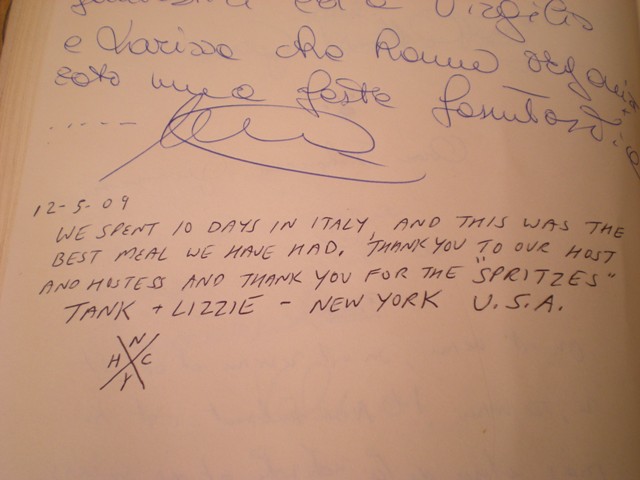 ed a Virgilio
e Larissa che hanno organiz
zato una festa fantastica
12-5-09
WE SPENT 10 DAYS IN ITALY, AND THIS WAS THE
BEST MEAL WE HAVE HAD. THANK YOU TO OUR HOST
AND HOSTESS AND THANK YOU FOR THE "SPRITZES"
TANK + LIZZIE - NEW YORK U.S.A.
N
H C
Y